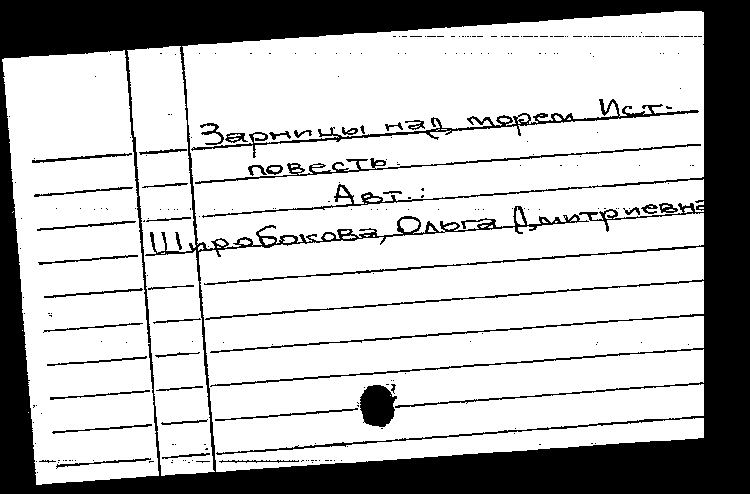 Зарницы над морем Ист.
повесть.
Авт.:
Широбокова, Ольга Дмитриевна